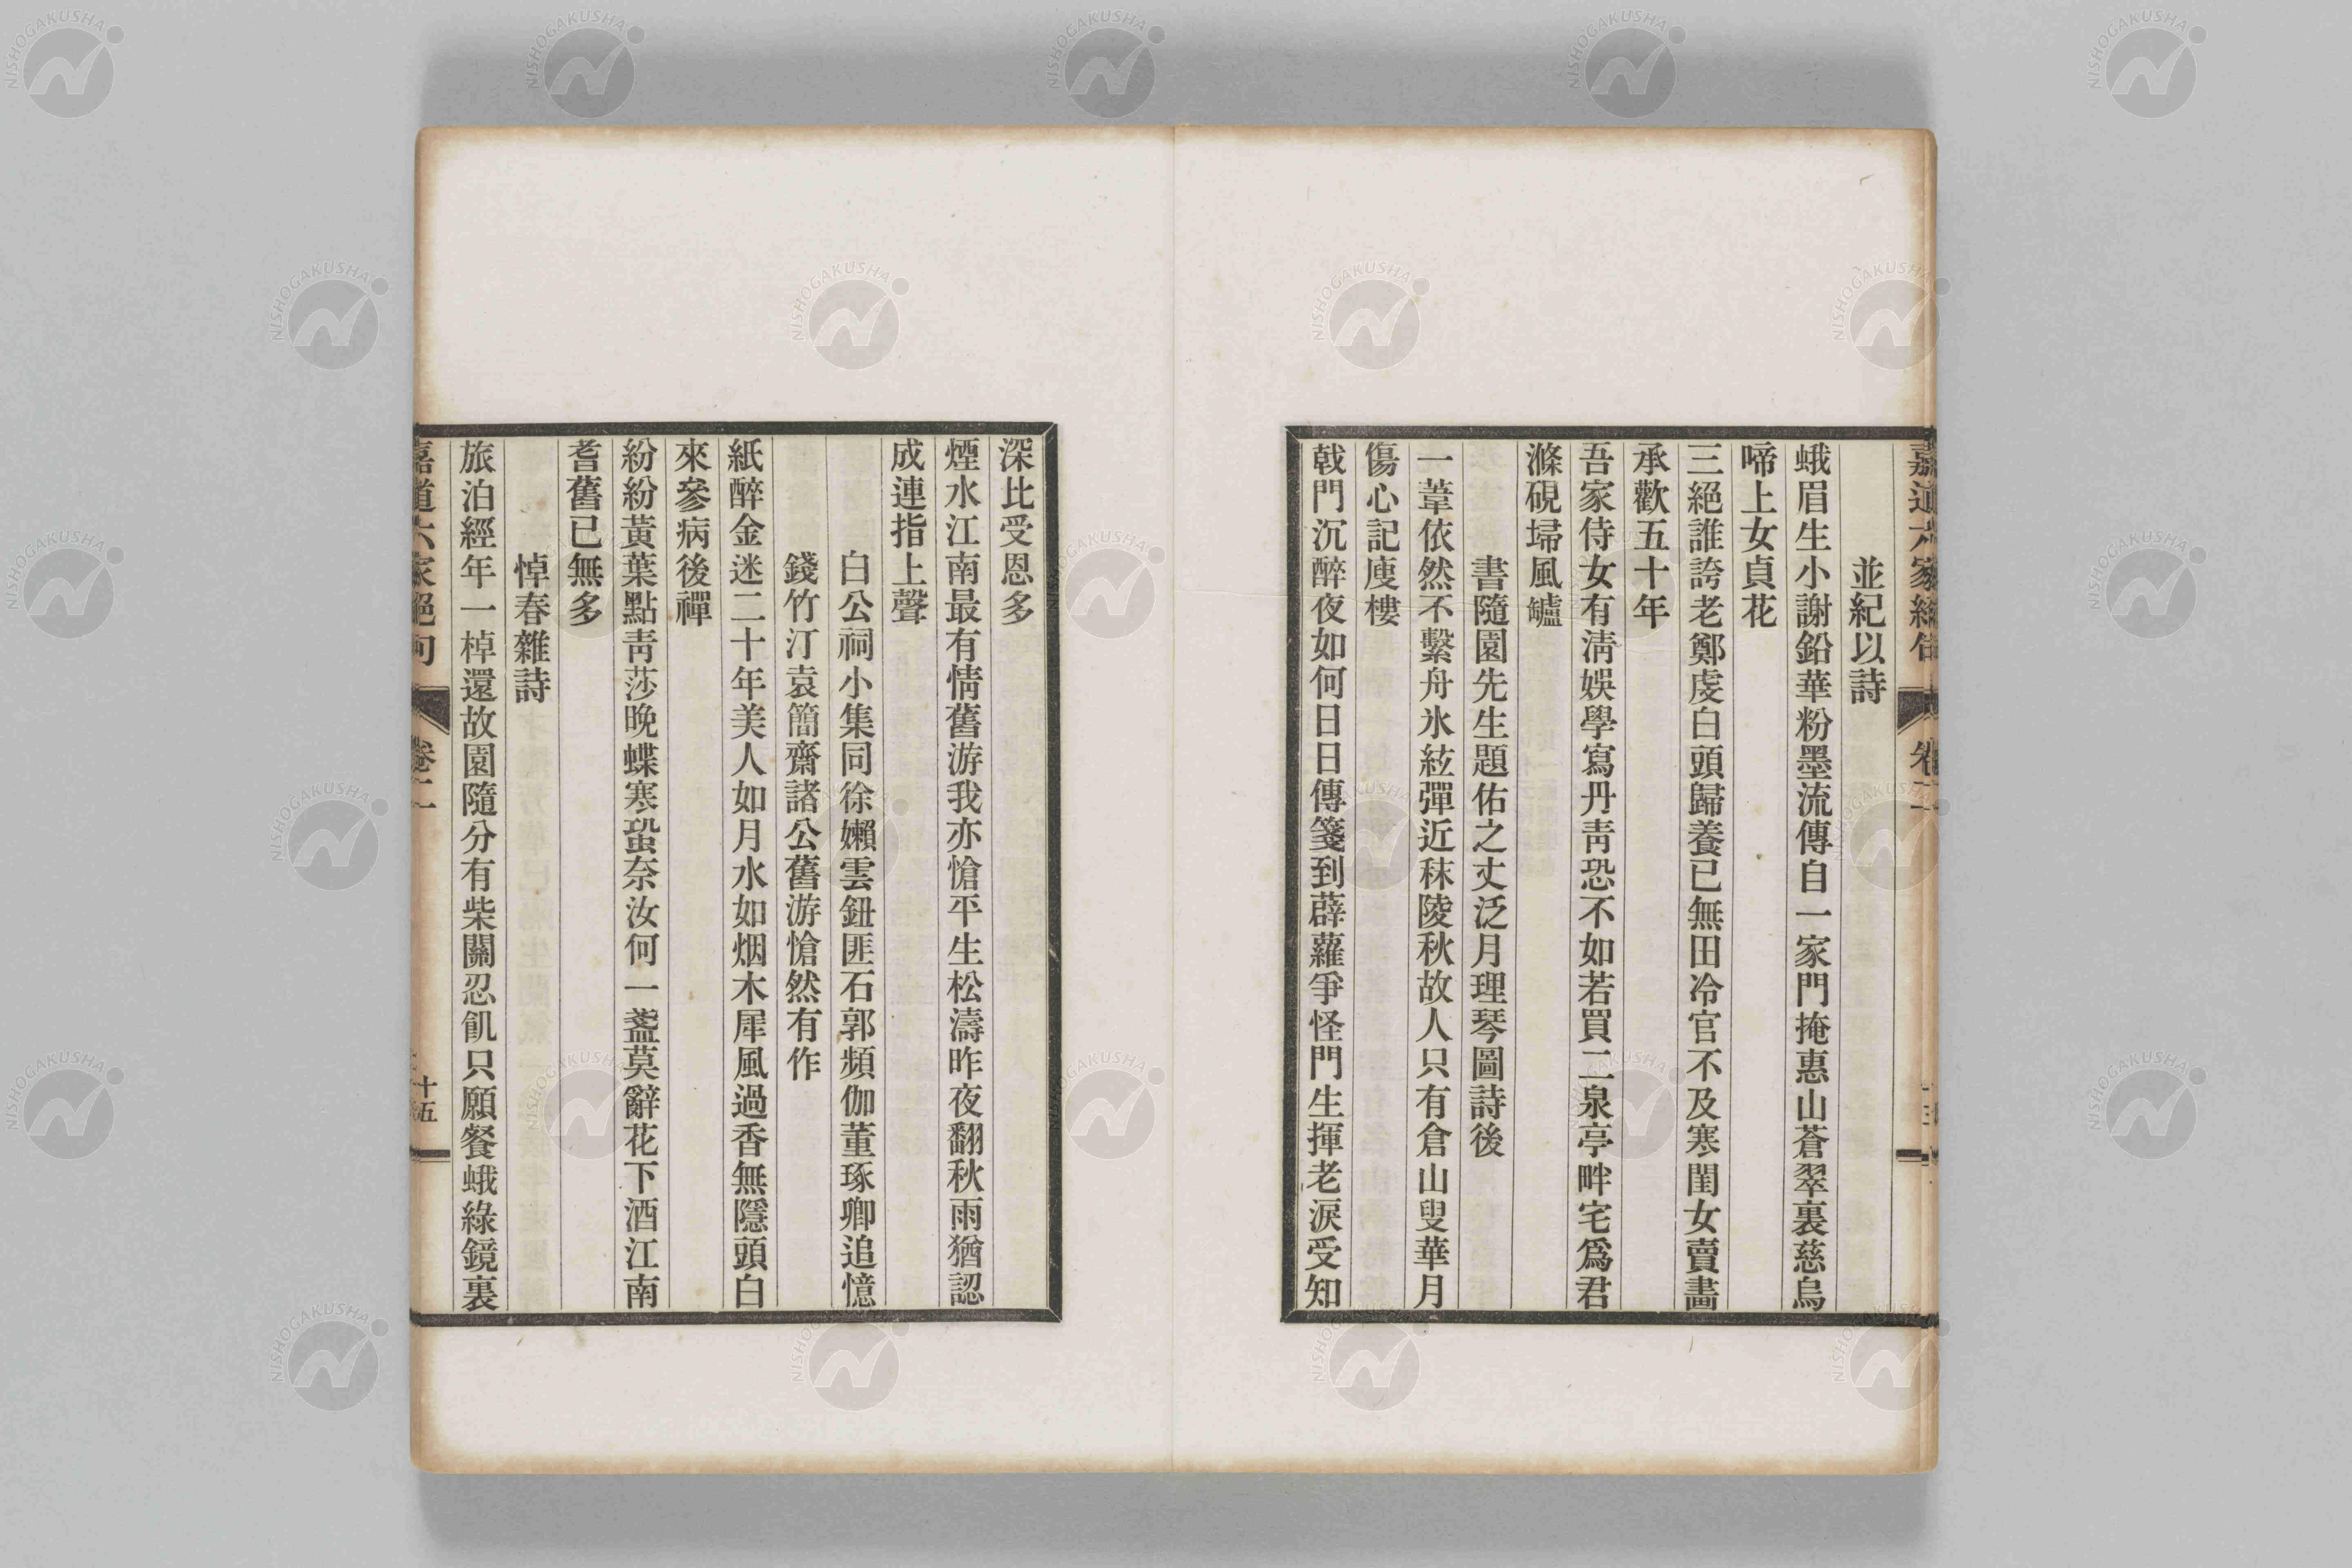 並紀以詩
蛾眉生小謝鉛華粉墨流傳自一家門掩惠山蒼翠裏慈烏
啼上女貞花
三絕誰誇老鄭虔白頭歸養已無田冷官不及寒閨女賣畫
承歡五十年
吾家侍女有淸娛學寫丹靑恐不如若買二泉亭畔宅爲君
滌硯埽風鑪
書隨園先生題佑之丈泛月理琴圖詩後
一葦依然不繫舟氷絃彈近秣陵秋故人只有倉山叟華月
傷心記庾樓
戟門沉醉夜如何日日傳箋到薜蘿爭怪門生揮老淚受知
深比受恩多
煙水江南最有情舊游我亦愴平生松濤昨夜翻秋雨猶認
成連指上聲
白公祠小集同徐嬾雲鈕匪石郭頻伽董琢卿追憶
錢竹汀袁簡齋諸公舊游愴然有作
紙醉金迷二十年美人如月水如烟木犀風過香無隱頭白
來參病後禪
紛紛黃葉點靑莎晚蝶寒蛩奈汝何一盞莫辭花下酒江南
耆舊已無多
悼春雜詩
旅泊經年一棹還故園隨分有柴關忍飢只願餐蛾綠鏡裏
嘉道六家絕句
卷二
十五
NISHOGAKUSHA